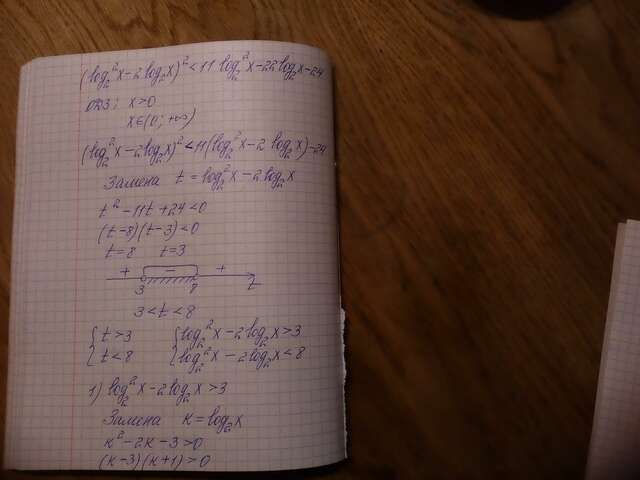 (log₂²x-2log₂x)²<11 log₂²x-22log₂x-24
ОДЗ: x>0
x∈(0; +∞)
(log₂²x-2log₂x)²<11(log₂²x-2 log₂x)-24
Замена t = log₂²x-2log₂x
t²-11t+24<0
(t-8)(t-3)<0
t=8 t=3
+ - +
3 8 t
3<t<8
{t>3 {log₂²x-2log₂x>3
{t<8 {log₂²x-2log₂x<8
1) log₂²x-2log₂x>3
Замена к=log₂x
к²-2к-3>0
(к-3)(к+1)>0